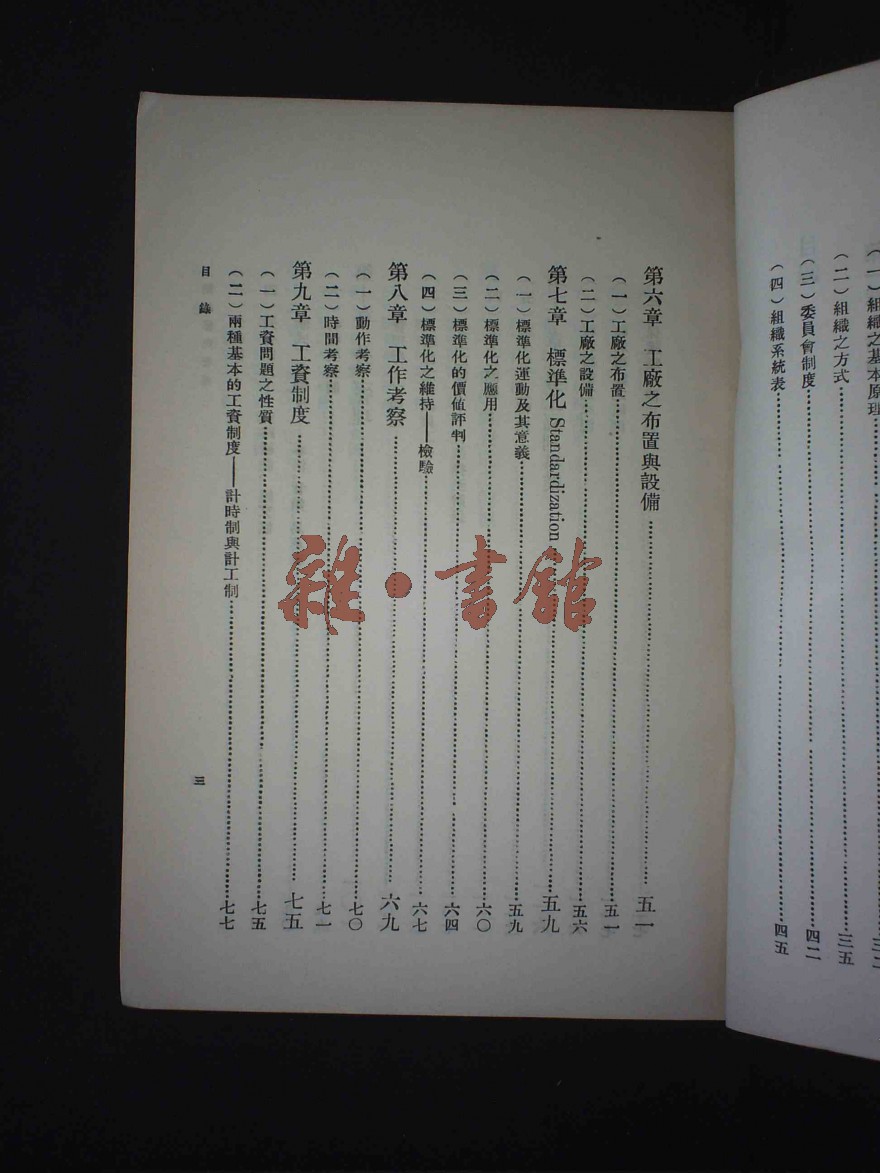 (一)組織之基本原理
(二)組織之方式……三五
(三)委員會制度……四二
(四)組織系統表……四五
第六章 工廠之布置與設備……五一
(一)工廠之布置……五一
(二)工廠之設備……五六
第七章 標準化 Standardization……五九
(一)標準化運動及其意義……五九
(二)標準化之應用……六〇
(三)標準化的價值評判……六四
(四)標準化之維持——檢驗……六七
第八章 工作考察……六九
(一)動作考察……七〇
(二)時間考察……七一
第九章 工資制度……七五
(一)工資問題之性質……七五
(二)兩種基本的工資制度——計時制與計工制……七七
目錄
三
雜·書館